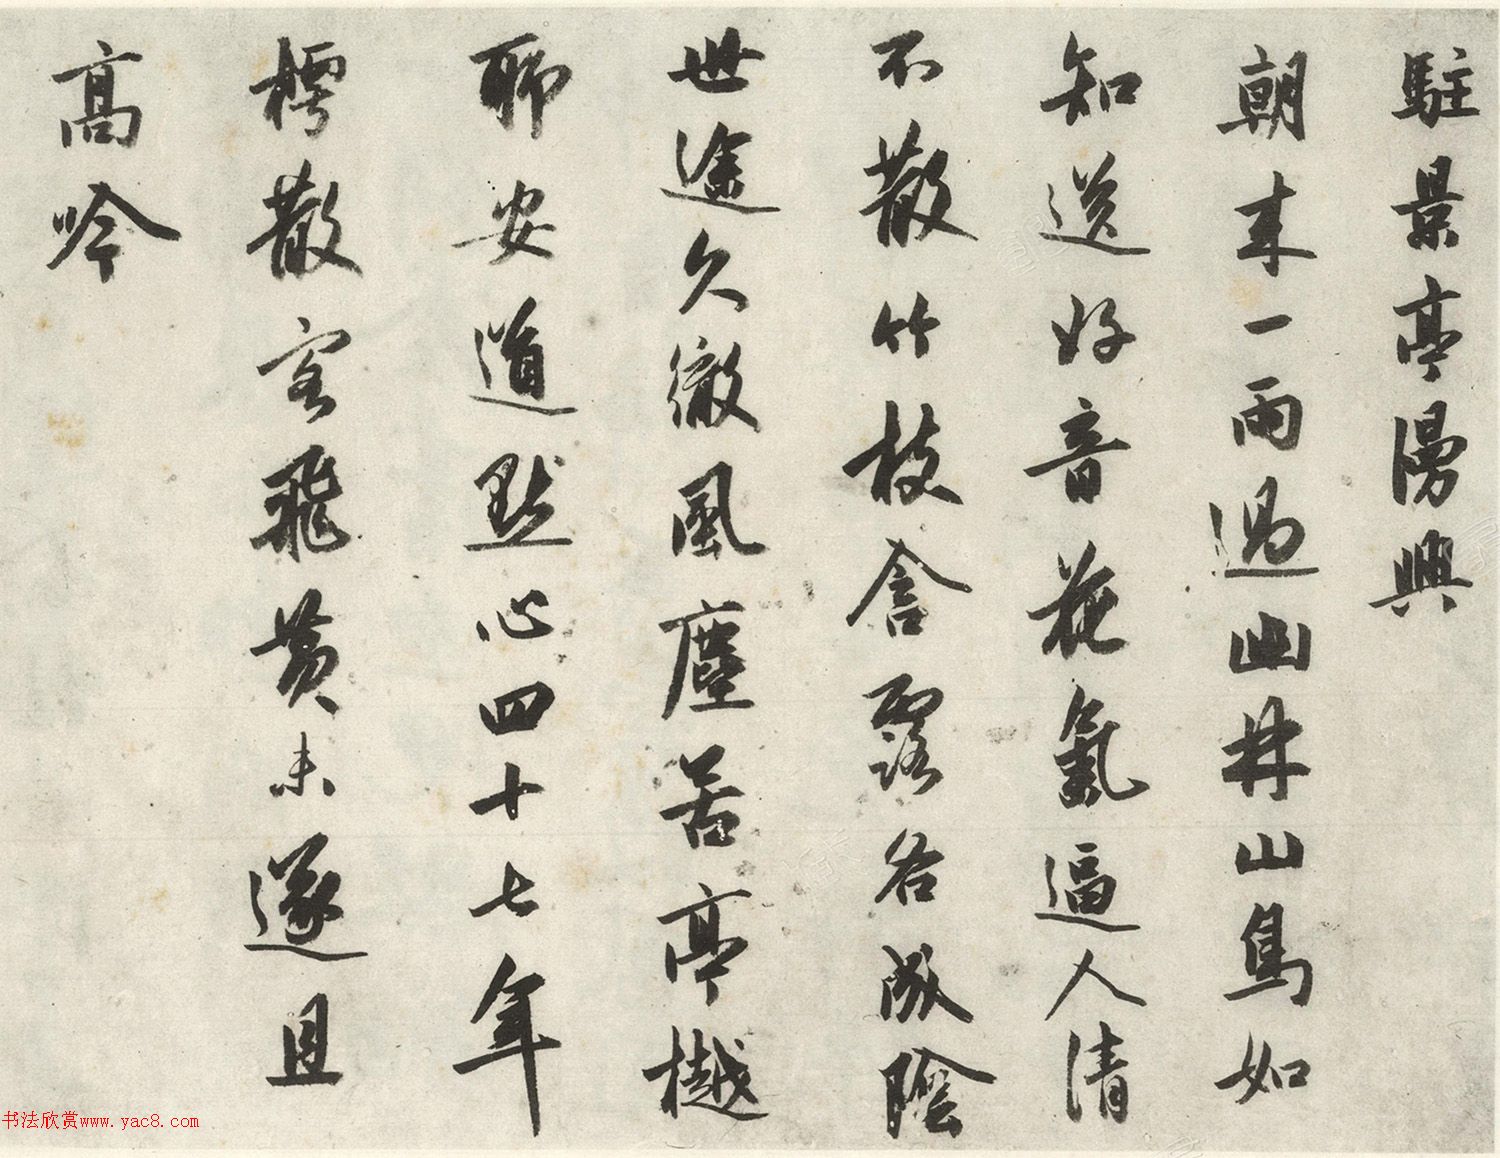 駐景亭漫興
朝來一雨過幽林山鳥如
知送好音花氣逼人清
不散竹枝含露各成陰
世途久徹風塵苦亭樾
聊安道默心四十七年
樗散客飛黃未遂且
高吟
书法欣赏www.yac8.com